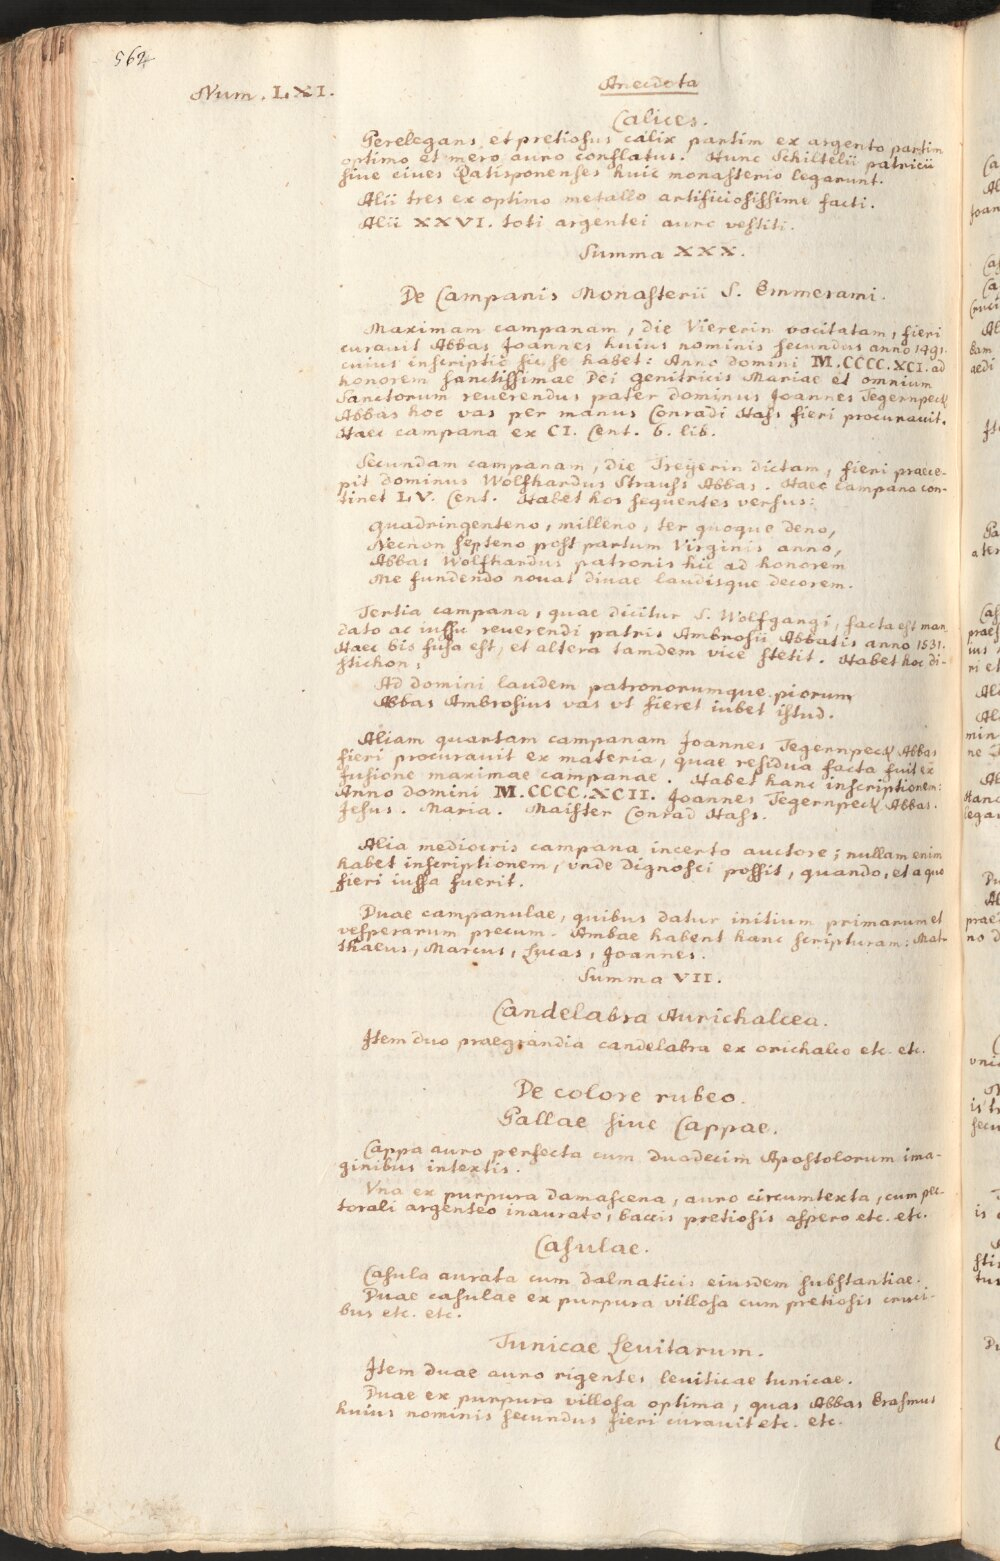 564
Num. LXI.
Anecdota
Calices.
Perelegans, et pretiosus calix partim ex argento partim
optimo et mero auro conflatus. Hunc Schiltelii patricii
sive cives Ratisponenses huic monasterio legarunt.
Alii tres ex optimo metallo artificiosissime facti.
Alii XXVI. toti argentei auro vestiti.
Summa XXX.
De Campanis Monasterii S. Emmerami.
Maximam campanam, die Viererin vocitatam, fieri
curauit Abbas Joannes huius nominis secundus anno 1491.
cuius inscriptio sic se habet: Anno domini M.CCCC.XCI. ad
honorem sanctissimae Dei genitricis Mariae et omnium
Sanctorum reuerendus pater dominus Joannes Tegernpeck
Abbas hoc vas per manus Conradi Hass fieri procurauit.
Haec campana ex CI. Cent. 6. lib.
Secundam campanam, die Treyerin dictam, fieri praece-
pit dominus Wolfhardus Strauss Abbas. Haec campana con-
tinet LV. Cent. Habet hos sequentes versus:
Quadringenteno, milleno, ter quoque deno,
Necnon septeno post partum Virginis anno,
Abbas Wolfhardus patronis hic ad honorem
Me fundendo nouat diuae laudisque decorem.
Tertia campana, quae dicitur S. Wolfgangi, facta est man
dato ac iussu reuerendi patris Ambrosii Abbatis anno 1531.
Haec bis fusa est, et altera tamdem vice stetit. Habet hoc di-
stichon:
Ad domini laudem patronorumque piorum
Abbas Ambrosius vas vt fieret iubet istud.
Aliam quartam campanam Joannes Tegernpeck Abbas
fieri procurauit ex materia, quae residua facta fuit ex
fusione maximae campanae. Habet hanc inscriptionem:
Anno domini M.CCCC.XCII. Joannes Tegernpeck Abbas.
Jesus. Maria. Maister Conrad Hass.
Alia mediocris campana incerto auctore; nullam enim
habet inscriptionem, vnde dignosci possit, quando, et a quo
fieri iussa fuerit.
Duae campanulae, quibus datur initium primarum et
vesperarum precum. Ambae habent hanc scripturam: Mat-
thaeus, Marcus, Lucas, Joannes.
Summa VII.
Candelabra Aurichalcea.
Item duo praegrandia candelabra ex orichalco etc. etc.
De colore rubeo.
Pallae siue Cappae.
Cappa auro perfecta cum duodecim Apostolorum ima-
ginibus intextis.
Vna ex purpura damascena, auro circumtexta, cum pec-
torali argenteo inaurato, baccis pretiosis aspero etc. etc.
Casulae.
Casula aurata cum dalmaticis eiusdem substantiae.
Duae casulae ex purpura villosa cum pretiosis cruci-
bus etc. etc.
Tunicae Leuitarum.
Item duae auro rigentes leuiticae tunicae.
Duae ex purpura villosa optima, quas Abbas Erasmus
huius nominis secundus fieri curauit etc. etc.